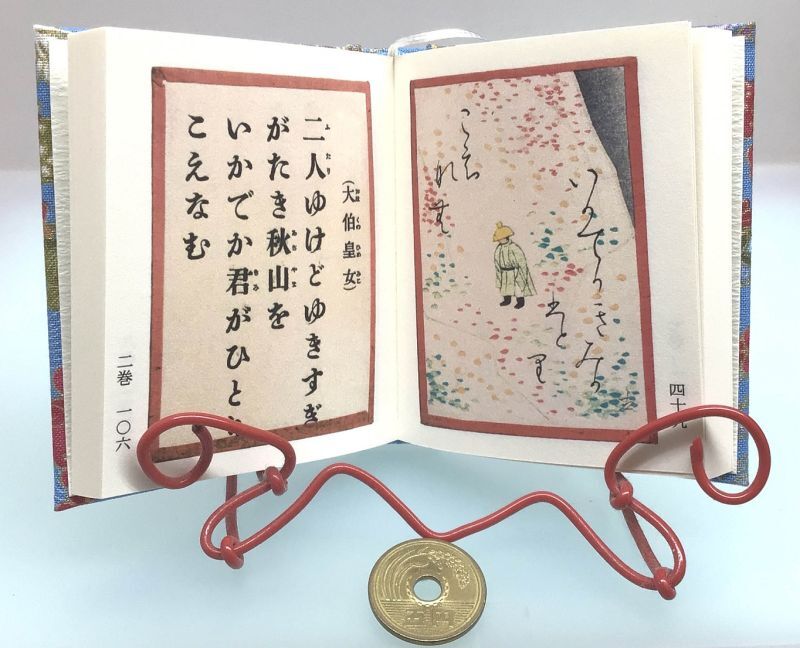 四十九
いかてかきみか
ひとり
(大伯皇女)
二人ゆけどゆきすぎ
がたき秋山を
いかでか君がひと
こえなむ
二巻 一〇六